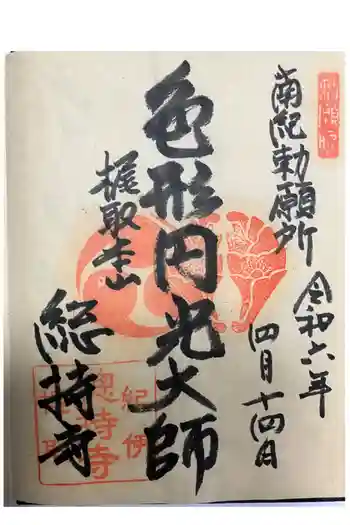 勅願所
南紀勅願所
令和六年
四月十四日
色形円光大師
梶取本山
総持寺
紀伊
總持寺